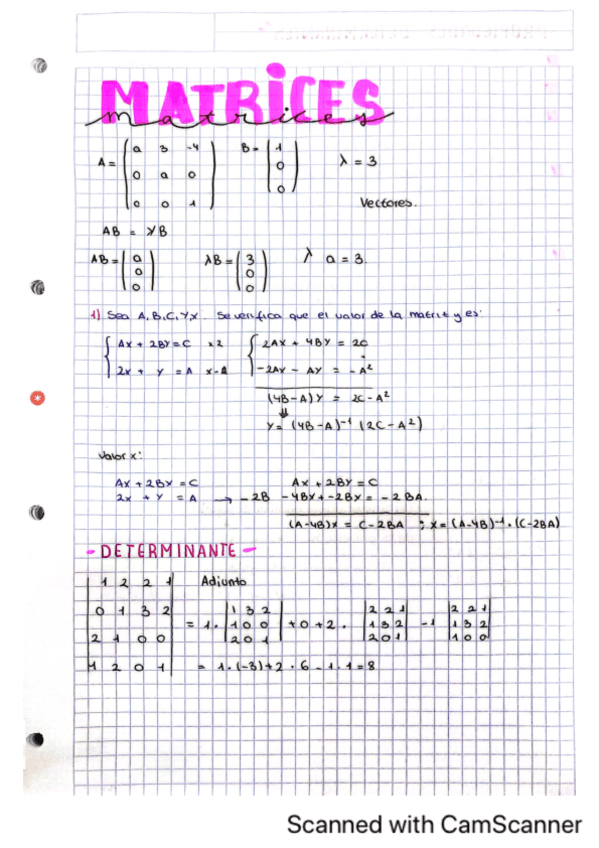 MATRICES
matrices
A = ( a 3 -4 B = ( 1 λ = 3
0 a 0 0
0 0 1 ) 0 )
Vectores.
AB = λB
AB = ( a 0 0 ) λB = ( 3 0 0 ) λ a = 3.
1) Sea A, B, C, Y, X. Se verifica que el valor de la matriz y es:
{ AX + 2BY = C x2 { 2AX + 4BY = 2C
2X + Y = A x-A -2AX - AY = -A²
(4B-A)Y = 2C-A²
⇓
Y = (4B-A)⁻¹ (2C-A²)
Valor x:
AX + 2BY = C AX + 2BY = C
2X + Y = A → -2B -4BX + -2BY = -2BA.
(A-4B)X = C-2BA ; X = (A-4B)⁻¹ · (C-2BA)
- DETERMINANTE -
| 1 2 2 1 Adjunto
0 1 3 2
2 1 0 0
1 2 0 1 | = 1 · | 1 3 2 1 0 0 2 0 1 | + 0 + 2 · | 2 2 1 1 3 2 2 0 1 | - 1 | 2 2 1 1 3 2 1 0 0 |
= 1 · (-3) + 2 · 6 - 1 · 1 = 8
Scanned with CamScanner